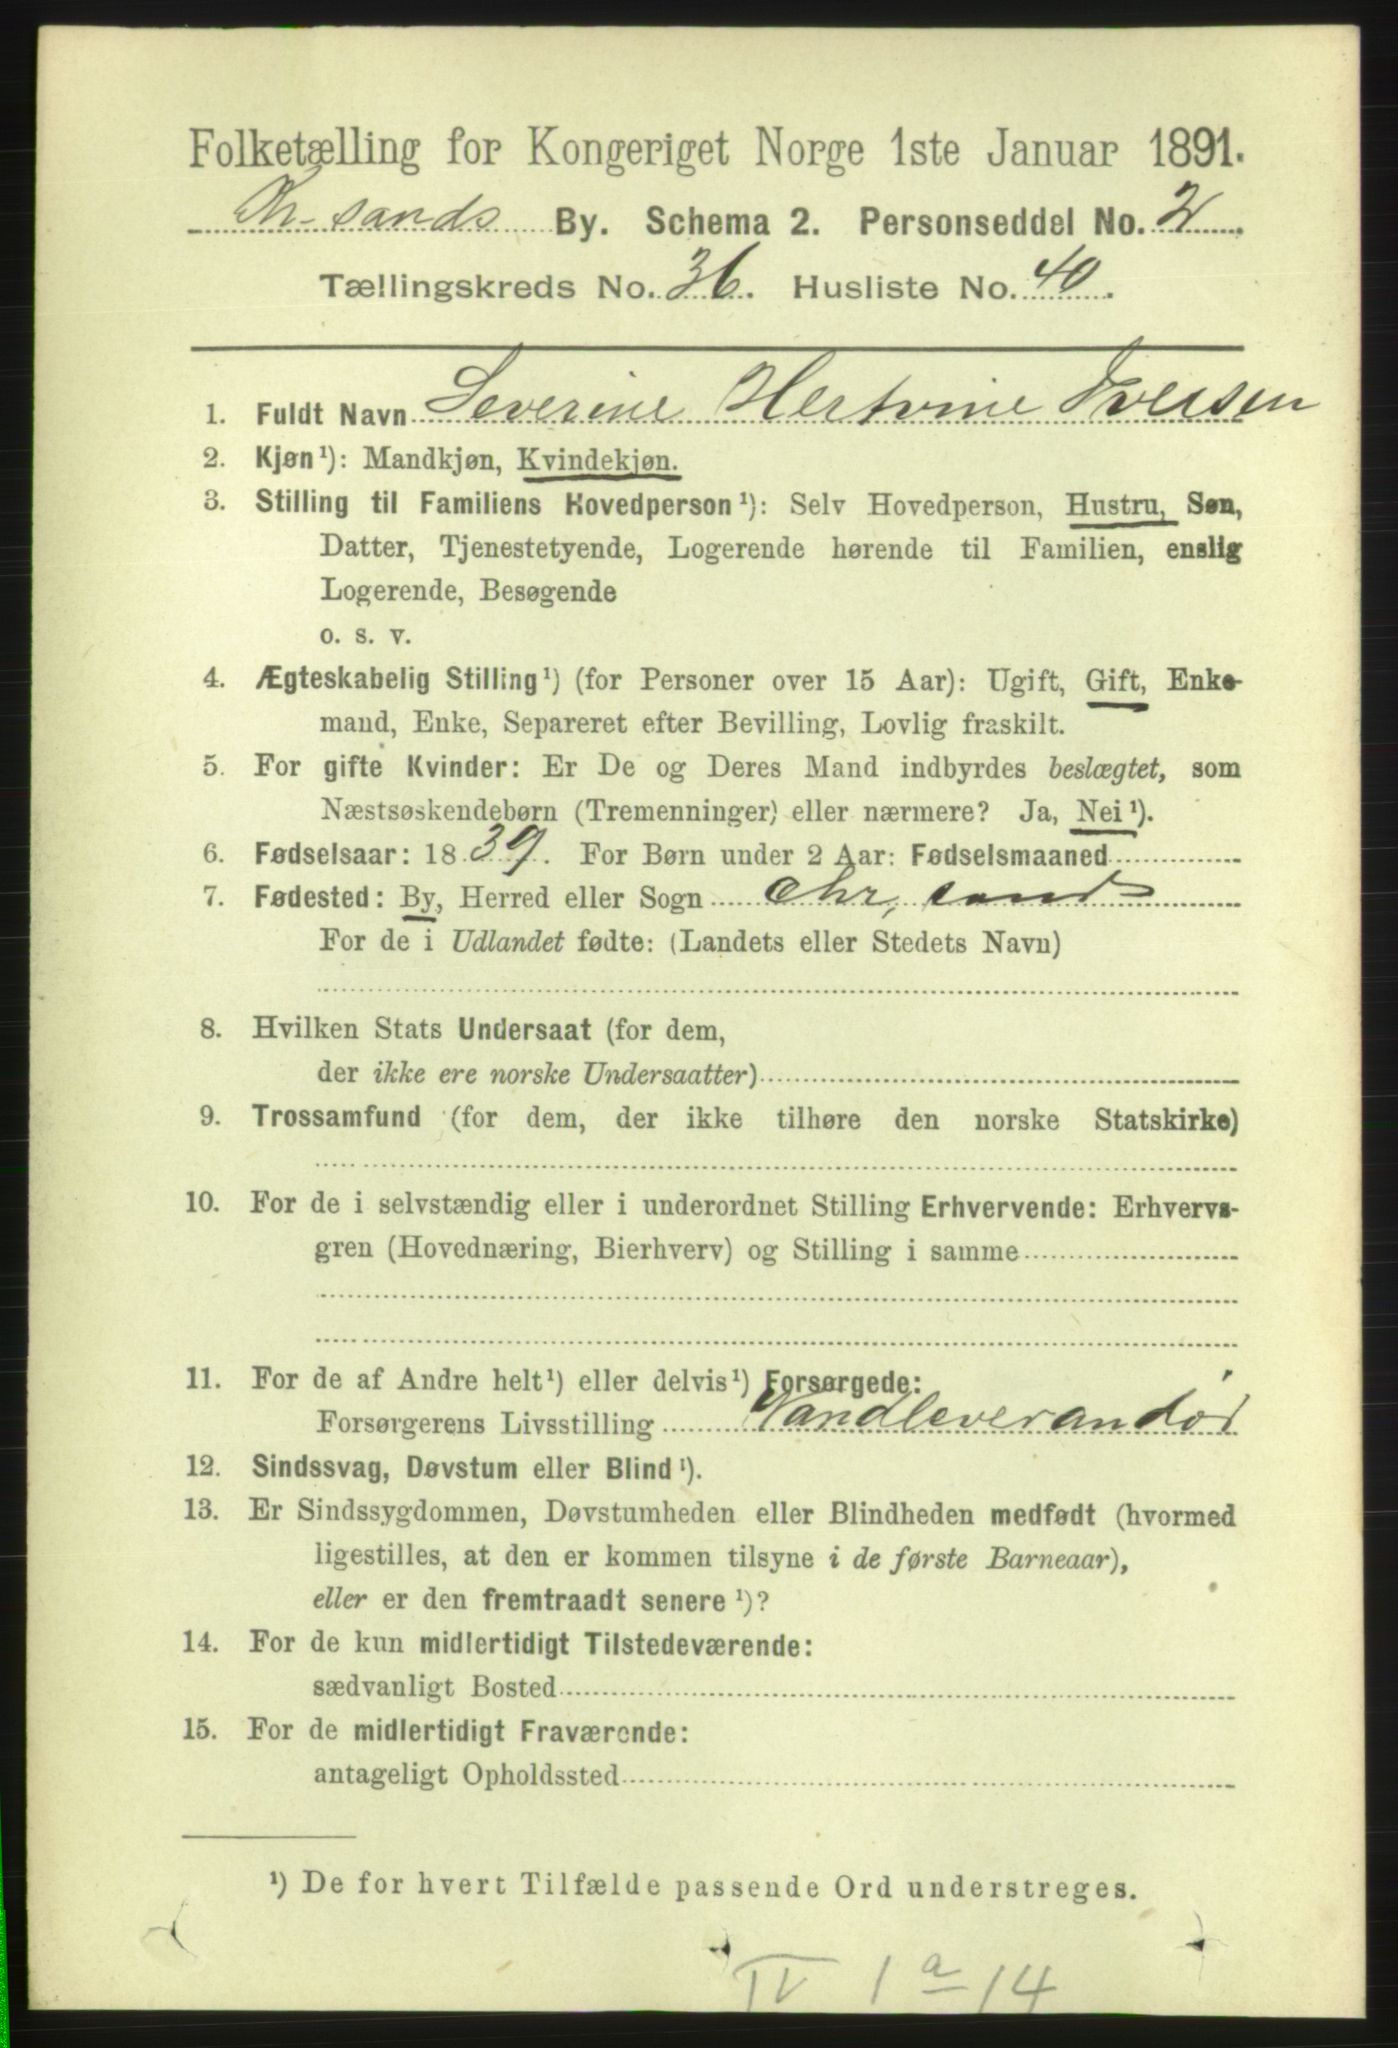 Folketælling for Kongeriget Norge 1ste Januar 1891.
Chr-sands By. Schema 2. Personseddel No. 2.
Tællingskreds No. 36. Husliste No. 40.
1. Fuldt Navn Severine Hertvine Iversen
2. Kjøn¹): Mandkjøn, Kvindekjøn.
3. Stilling til Familiens Hovedperson¹): Selv Hovedperson, Hustru, Søn,
Datter, Tjenestetyende, Logerende hørende til Familien, enslig
Logerende, Besøgende
o. s. v.
4. Ægteskabelig Stilling¹) (for Personer over 15 Aar): Ugift, Gift, Enke-
mand, Enke, Separeret efter Bevilling, Lovlig fraskilt.
5. For gifte Kvinder: Er De og Deres Mand indbyrdes beslægtet, som
Næstsøskendebørn (Tremenninger) eller nærmere? Ja, Nei¹).
6. Fødselsaar: 1839. For Børn under 2 Aar: Fødselsmaaned
7. Fødested: By, Herred eller Sogn Chr, sand
For de i Udlandet fødte: (Landets eller Stedets Navn)
8. Hvilken Stats Undersaat (for dem,
der ikke ere norske Undersaatter)
9. Trossamfund (for dem, der ikke tilhøre den norske Statskirke)
10. For de i selvstændig eller i underordnet Stilling Erhvervende: Erhvervs-
gren (Hovednæring, Bierhverv) og Stilling i samme
11. For de af Andre helt¹) eller delvis¹) Forsørgede:
Forsørgerens Livsstilling Vandleverandør
12. Sindssvag, Døvstum eller Blind¹).
13. Er Sindssygdommen, Døvstumheden eller Blindheden medfødt (hvormed
ligestilles, at den er kommen tilsyne i de første Barneaar),
eller er den fremtraadt senere¹)?
14. For de kun midlertidigt Tilstedeværende:
sædvanligt Bosted
15. For de midlertidigt Fraværende:
antageligt Opholdssted
¹) De for hvert Tilfælde passende Ord understreges.
IV 1 a 14